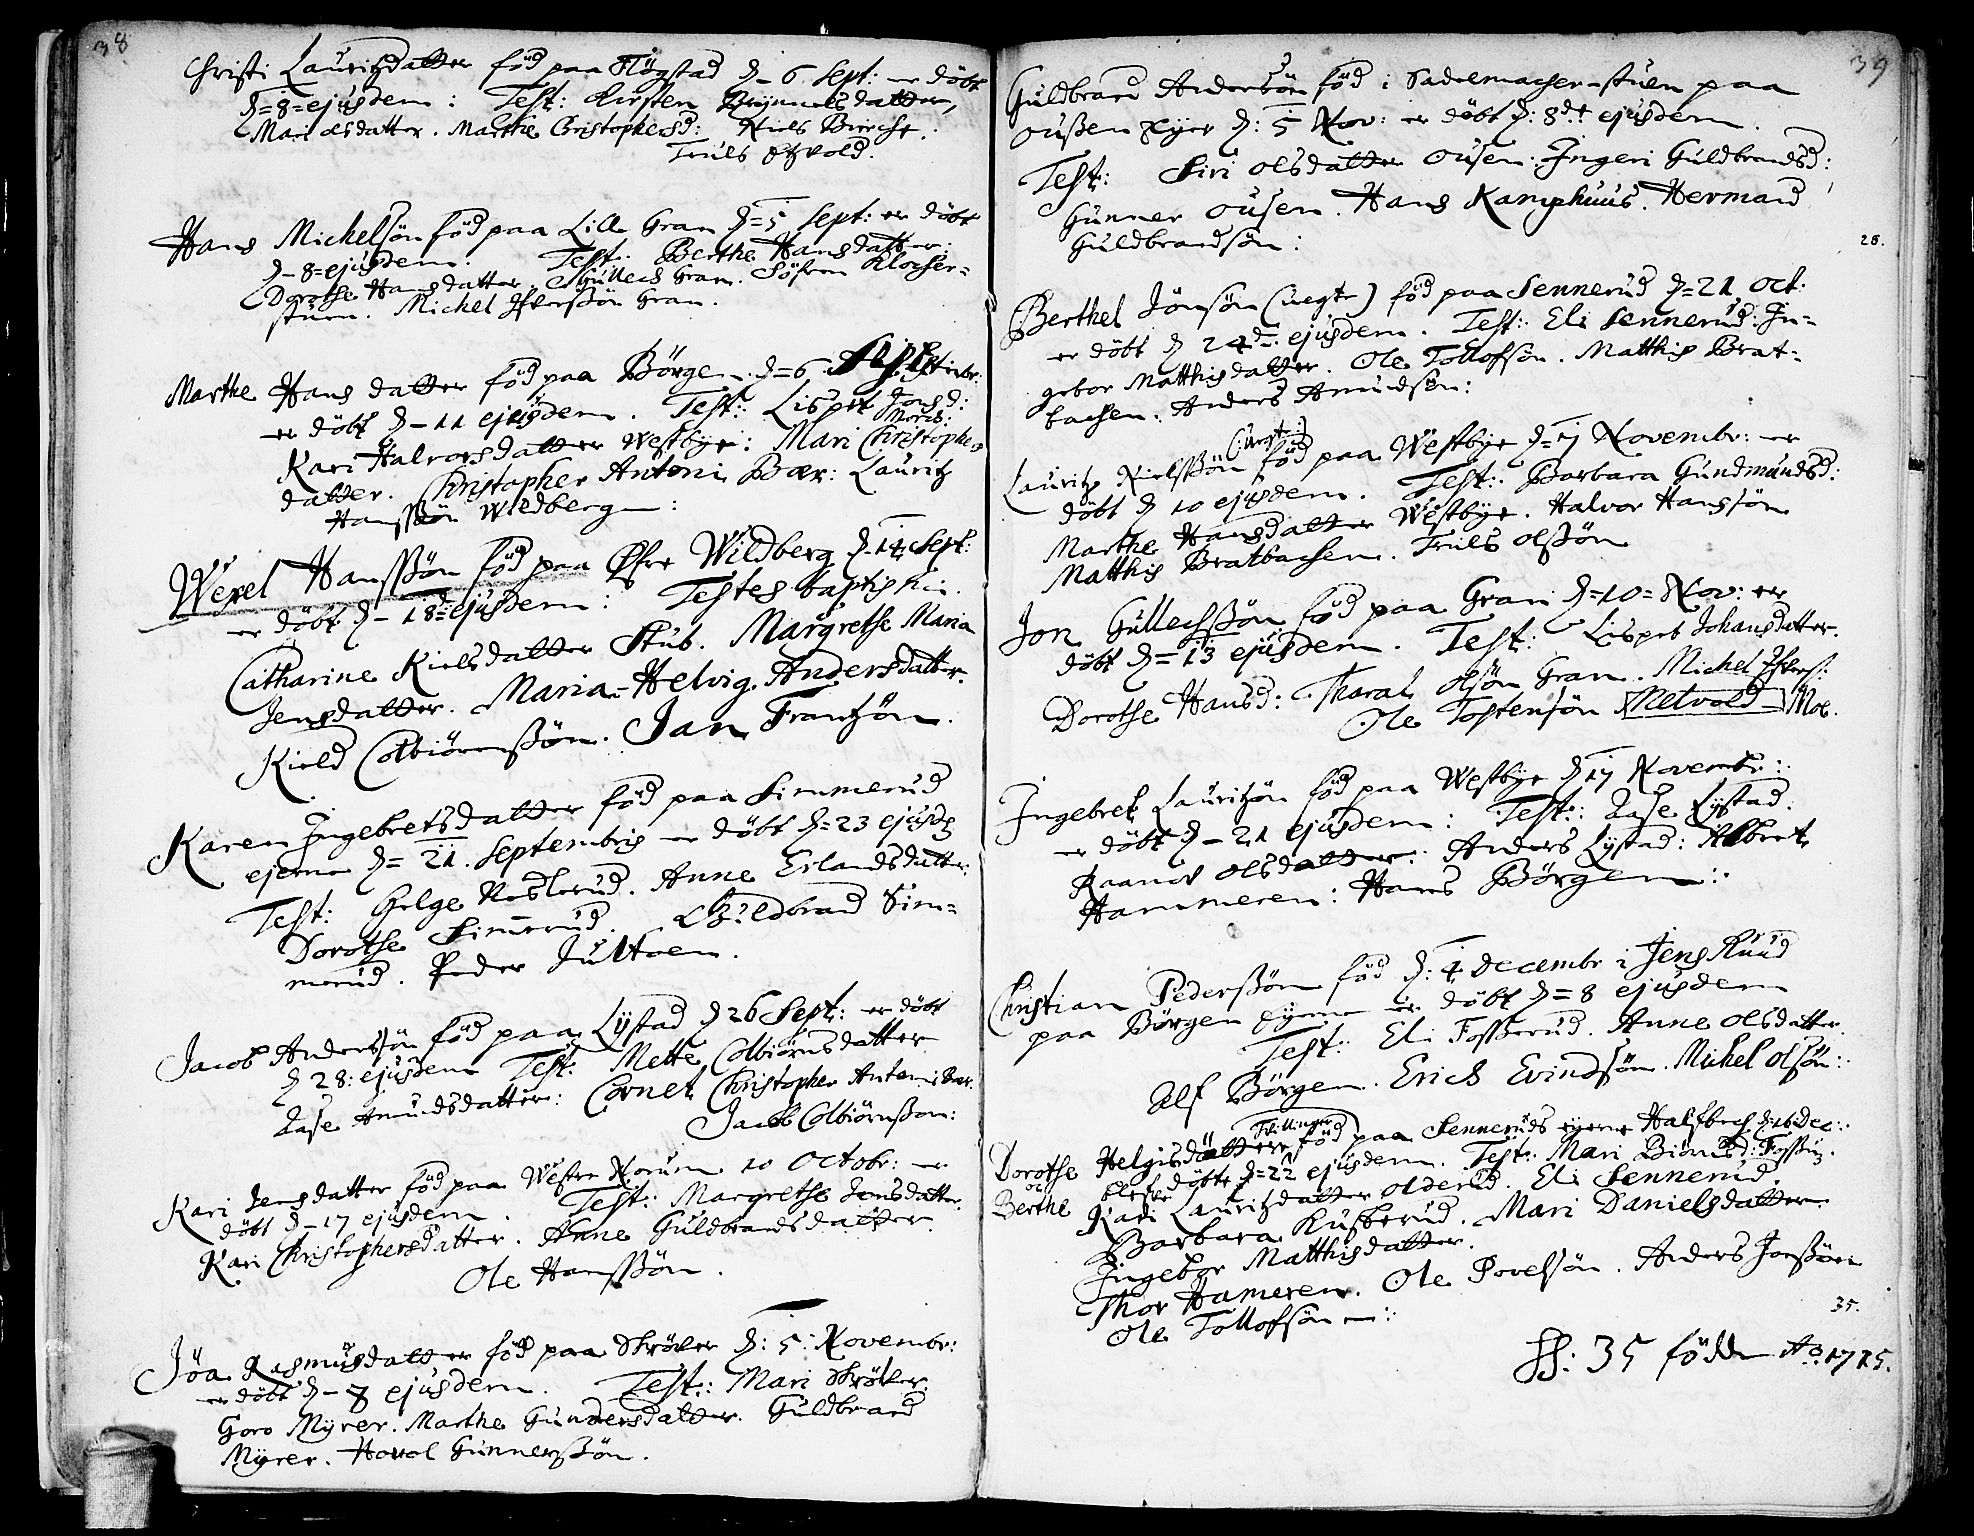 38
Christi Lauritzdatter föd paa Högstad d- 6 Sept: er döbt
d=8=ejusdem: Test: Kirsten Brÿnnelsdatter,
Mari olsdatter. Marthe Christophersd: Niels Birche.
Truls Opvold.
Hans Michelsön föd paa Lille Gran d=5 Sept: er döbt
d-8=ejusdem: Test: Berthe Hansdatter:
Dorothe Hansdatter. Gullech Gran. Söfren Klocher=
stuen. Michel Ifverssön Gran.
Marthe Hansdatter föd paa Börge- d=6 Septembr:
er döbt d-11 ejusdem. Test: Lisbet Jonsd:
Kari Halvorsdatter Westbÿe: Mari Christopher
datter. Christopher Antoni Bær: Lauritz
Hanssön Wildberg:
Wexel Hanssön föd paa Øfre Wildberg d-14 Sept:
er döbt d-18= ejusdem: Testes baptismi.
Catharine Kieldsdatter Stub. Margrethe Maria
Jensdatter. Maria=Helvig Andersdatter.
Kield Colbiörnssön. Jan Frantzön.
Karen Ingebretsdatter föd paa Simmerud
ejerne d= 21. Septembris er döbt d=23 ejusdem
Test: Helge Roslerud. Anne Erlandsdatter.
Dorothe Simerud. Guldbrand Sim=
merud. Peder Jultoen.
Jacob Anderssön föd paa Lÿstad d 26 Sept: er döbt
d 28: ejusdem Test: Mette Colbiörnsdatter
Aase Amundsdatter: Cornet Christopher Antoni Bær.
Jacob Colbiörnsson:
Kari Jensdatter föd paa Westre Norum 10 Octobr: er
döbt d-17 ejusdem. Test: Margrethe Jonsdatter.
Kari Christophersdatter. Anne Guldbrandsdatter.
Ole Hanssön.
Jöa Rasmusdatter föd paa Skröler d: 5: Novembr:
er döbt d-8 ejusdem. Test: Mari Skröler.
Goro Mÿrer. Marthe Gundersdatter. Guldbrand
Mÿrer. Havol Gunnerssön.
39
Guldbrand Andersön föd i Sadelmacher-stuen paa
Oussen eÿer d: 5 Nov: er döbt d: 8de ejusdem.
Test: Siri olsdatter Ousen. Ingeri Guldbrandsd:
Gunner Ousen. Hans Kamphuus. Hermand
Guldbrandsön:
28.
Berthel Jönsön (uegte) föd paa Sennerud d=21 Oct:
er döbt d 24de ejusdem. Test: Eli Sennerud: In=
gebor Matthisdatter. Ole Tollofsön. Matthis Brat=
bachen: Anders Amundsön:
(:uegte:)
Lauritz Nielssön föd paa Westbÿe d=7 Novembr: er
döbt d 10 ejusdem. Test: Barbara Gundmundsd:
Marthe Hansdatter Westbÿe. Halvor Hanssön
Matthis Bratbachen. Truls olssön
Jon Gullechssön föd paa Gran d=10= Nov: er
döbt d=13 ejusdem. Test: Lisbet Johansdatter.
Dorothe Hansd: Tharal olsön Gran. Michel Ifvers:
Ole Tostensön Netvold Moe.
Ingebret Lauritzön föd paa Westbÿe d 17 Novemb::
er döbt d-21 ejusdem: Test: Aase Lÿstad.
Raanov olsdatter: Anders Lÿstad: Albret
Hammeren: Hans Börgen:
Christian Pederssön föd d: 4 Decembr i Jens Ruud
paa Börgen eÿerne er döbt d=8 ejusdem
Test: Eli Fosserud. Anne olsdatter.
Alf Börgen. Erich Evindsön. Michel olsön:
Tvillinger
Dorothe Helgisdötter föd paa Sennerüds eÿerne Halfbech d=16 Dec:
oc
Berthe blefve döbte d=22 ejusdem. Test: Mari Biörnsd: Fossum.
Kari Lauritzdatter olderud. Eli Sennerud.
Barbara Kusserud. Mari Danielsdatter
Ingebor Matthisdatter.
Thor Hameren. Ole Povelsön. Anders Jonssön
Ole Tollofsön:
35.
SS: 35 födde Ao 1715.